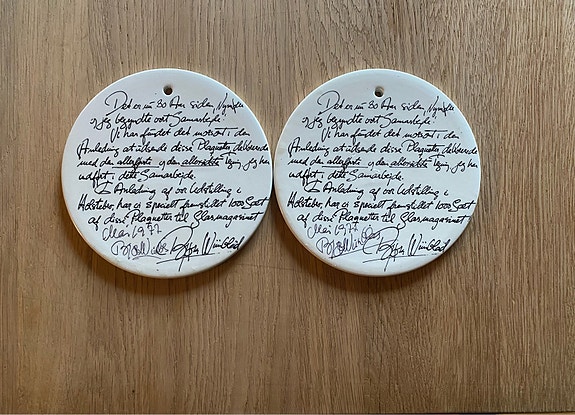 Det er nu 30 Aar siden, Nymølle
og jeg begyndte vort Samarbejde.
Vi har fundet det morsomt, i den
Anledning at udsende disse Plaquetter, dekoreret
med den allerførste og den allersidste Tegn. jeg har
udført i dette Samarbejde.
I Anledning af vor Udstilling i
Holstebro, har vi specielt fremstillet 1000 Sæt
af disse Plaquetter til Glasmagasinet
Mai 1977
Bjørn Wiinblad
Det er nu 30 Aar siden, Nymølle
og jeg begyndte vort Samarbejde.
Vi har fundet det morsomt, i den
Anledning at udsende disse Plaquetter, dekoreret
med den allerførste og den allersidste Tegn. jeg har
udført i dette Samarbejde.
I Anledning af vor Udstilling i
Holstebro, har vi specielt fremstillet 1000 Sæt
af disse Plaquetter til Glasmagasinet
Mai 1977
Bjørn Wiinblad